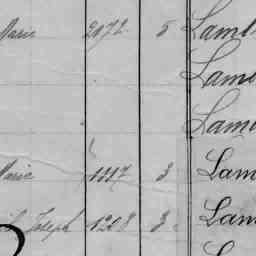 Marie 2072 5 Lamb
Lame
Lam
Marie 1117 3 Lam
Joseph 1208 3 Lam